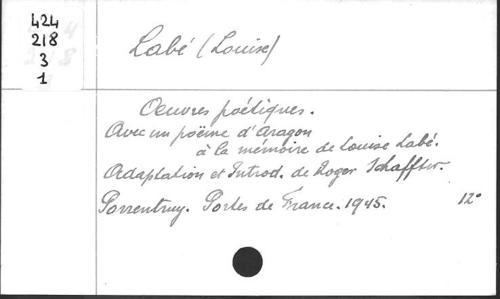 424
218
3
1
Labé (Louise)
Oeuvres poétiques.
Avec un poëme d'Aragon
à la mémoire de Louise Labé.
Adaptation et Introd. de Roger Schaffter.
Porrentruy. Portes de France. 1945. 12°